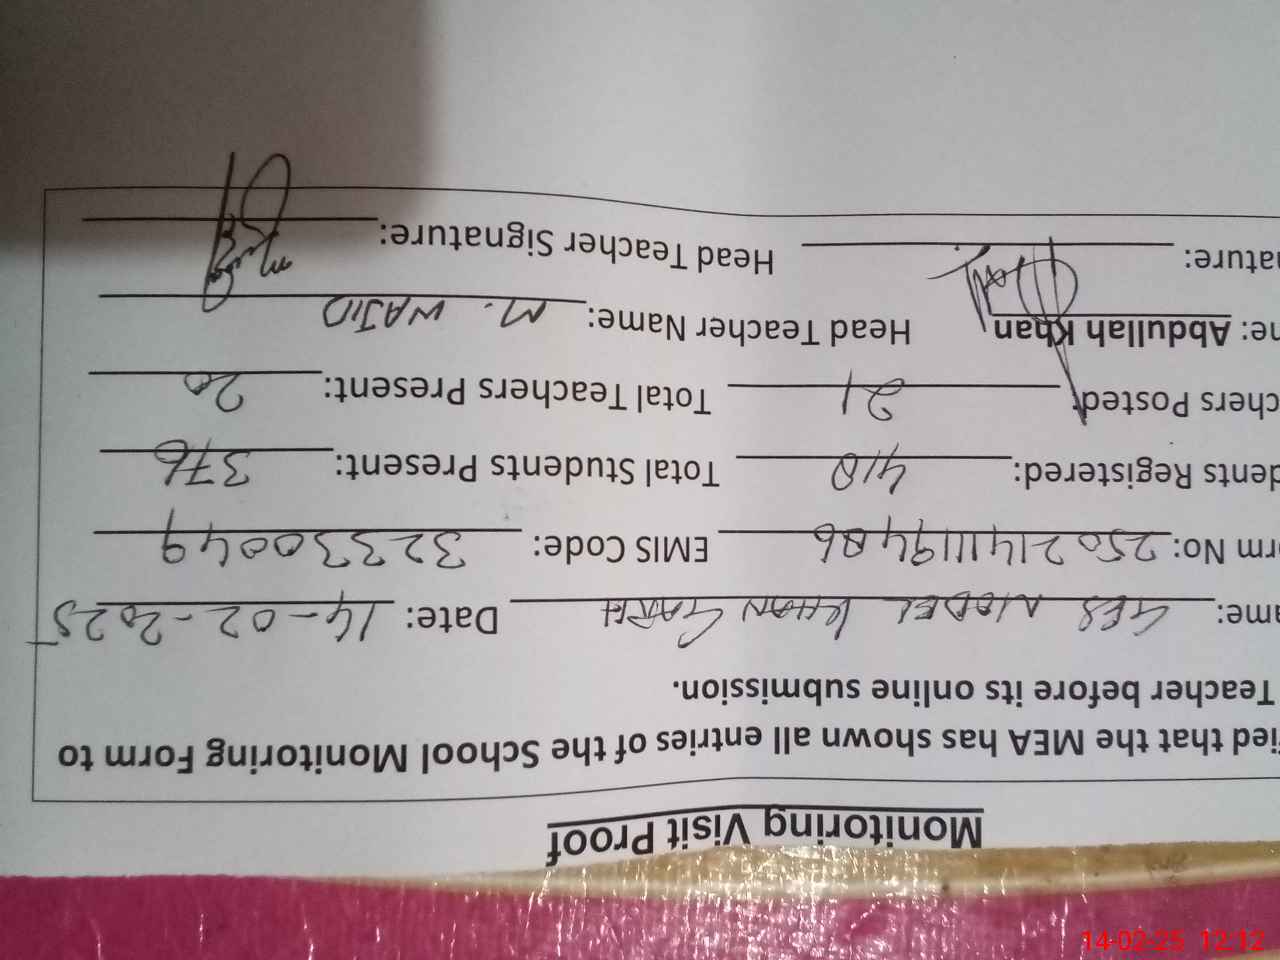 Monitoring Visit Proof
fied that the MEA has shown all entries of the School Monitoring Form to
Teacher before its online submission.
ame: GES MODEL KHAN GARH Date: 14-02-2025
rm No: 250214111194406 EMIS Code: 32330049
dents Registered: 410 Total Students Present: 376
chers Posted: 21 Total Teachers Present: 20
ne: Abdullah Khan Head Teacher Name: M. WAJID
ature: Head Teacher Signature:
14-02-25 12:12